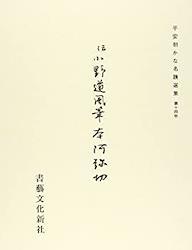 平安朝かな名蹟選集 第十四巻
伝小野道風筆 本阿弥切
書藝文化新社